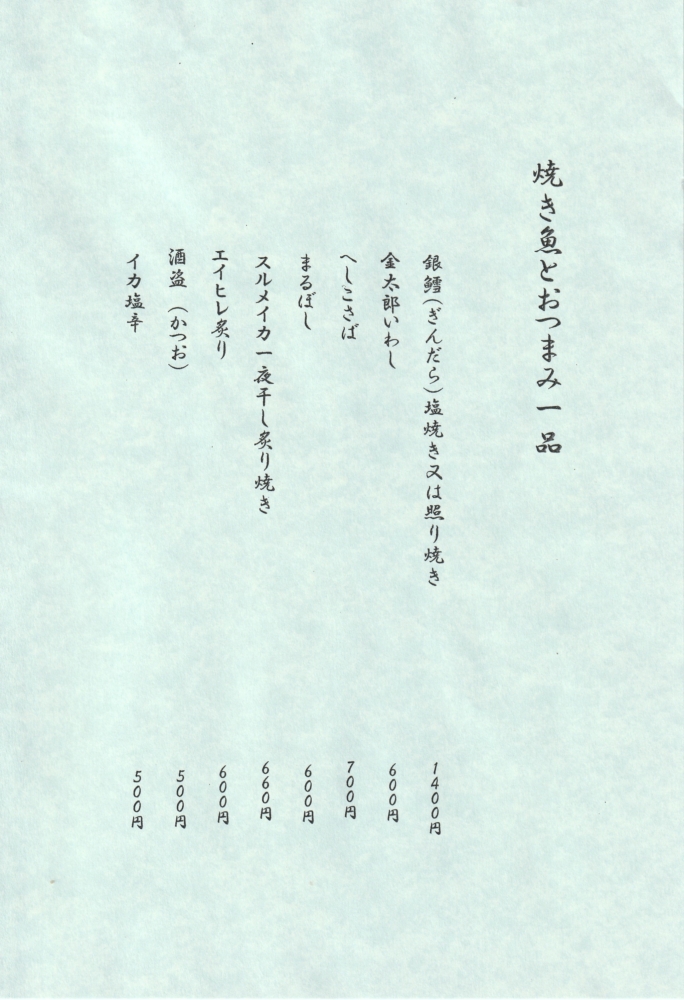 焼き魚とおつまみ一品
銀鱈(ぎんだら)塩焼き又は照り焼き 1400円
金太郎いわし 600円
へしこさば 700円
まるぼし 600円
スルメイカ一夜干し炙り焼き 660円
エイヒレ炙り 600円
酒盗 (かつお) 500円
イカ塩辛 500円